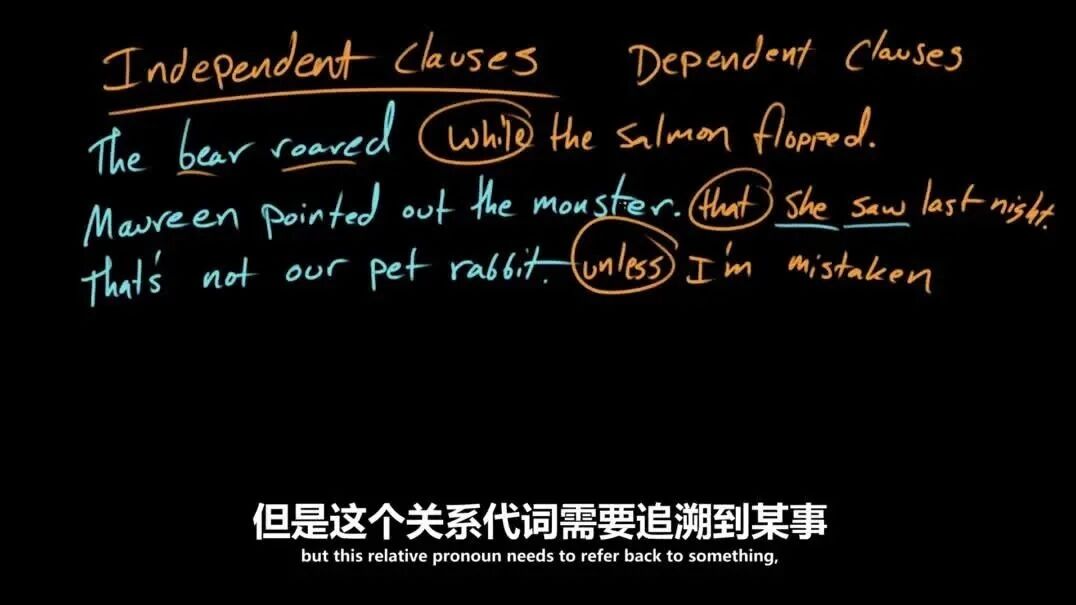 Independent Clauses Dependent Clauses
The bear roared while the salmon flopped.
Maureen pointed out the monster. that she saw last night.
That's not our pet rabbit. unless I'm mistaken
但是这个关系代词需要追溯到某事
but this relative pronoun needs to refer back to something,